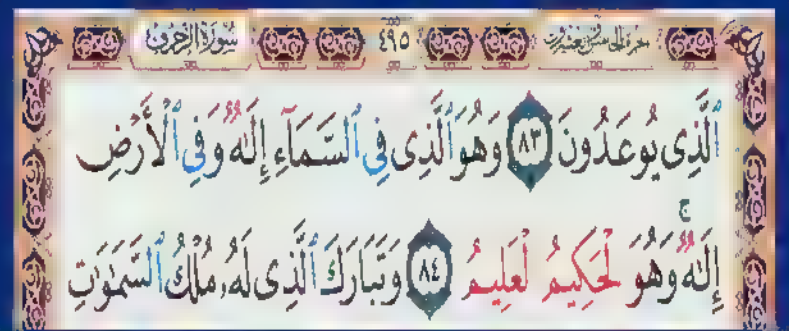 سُورَةُ الزُّخْرُفِ ٤٩٥ الجزء الخامس والعشرون
ٱلَّذِى يُوعَدُونَ ٨٣ وَهُوَ ٱلَّذِى فِى ٱلسَّمَآءِ إِلَٰهٌ وَفِى ٱلْأَرْضِ
إِلَٰهٌ ۚ وَهُوَ لْحَكِيمُ لْعَلِيمُ ٨٤ وَتَبَارَكَ ٱلَّذِى لَهُۥ مُلْكُ ٱلسَّمَٰوَٰتِ